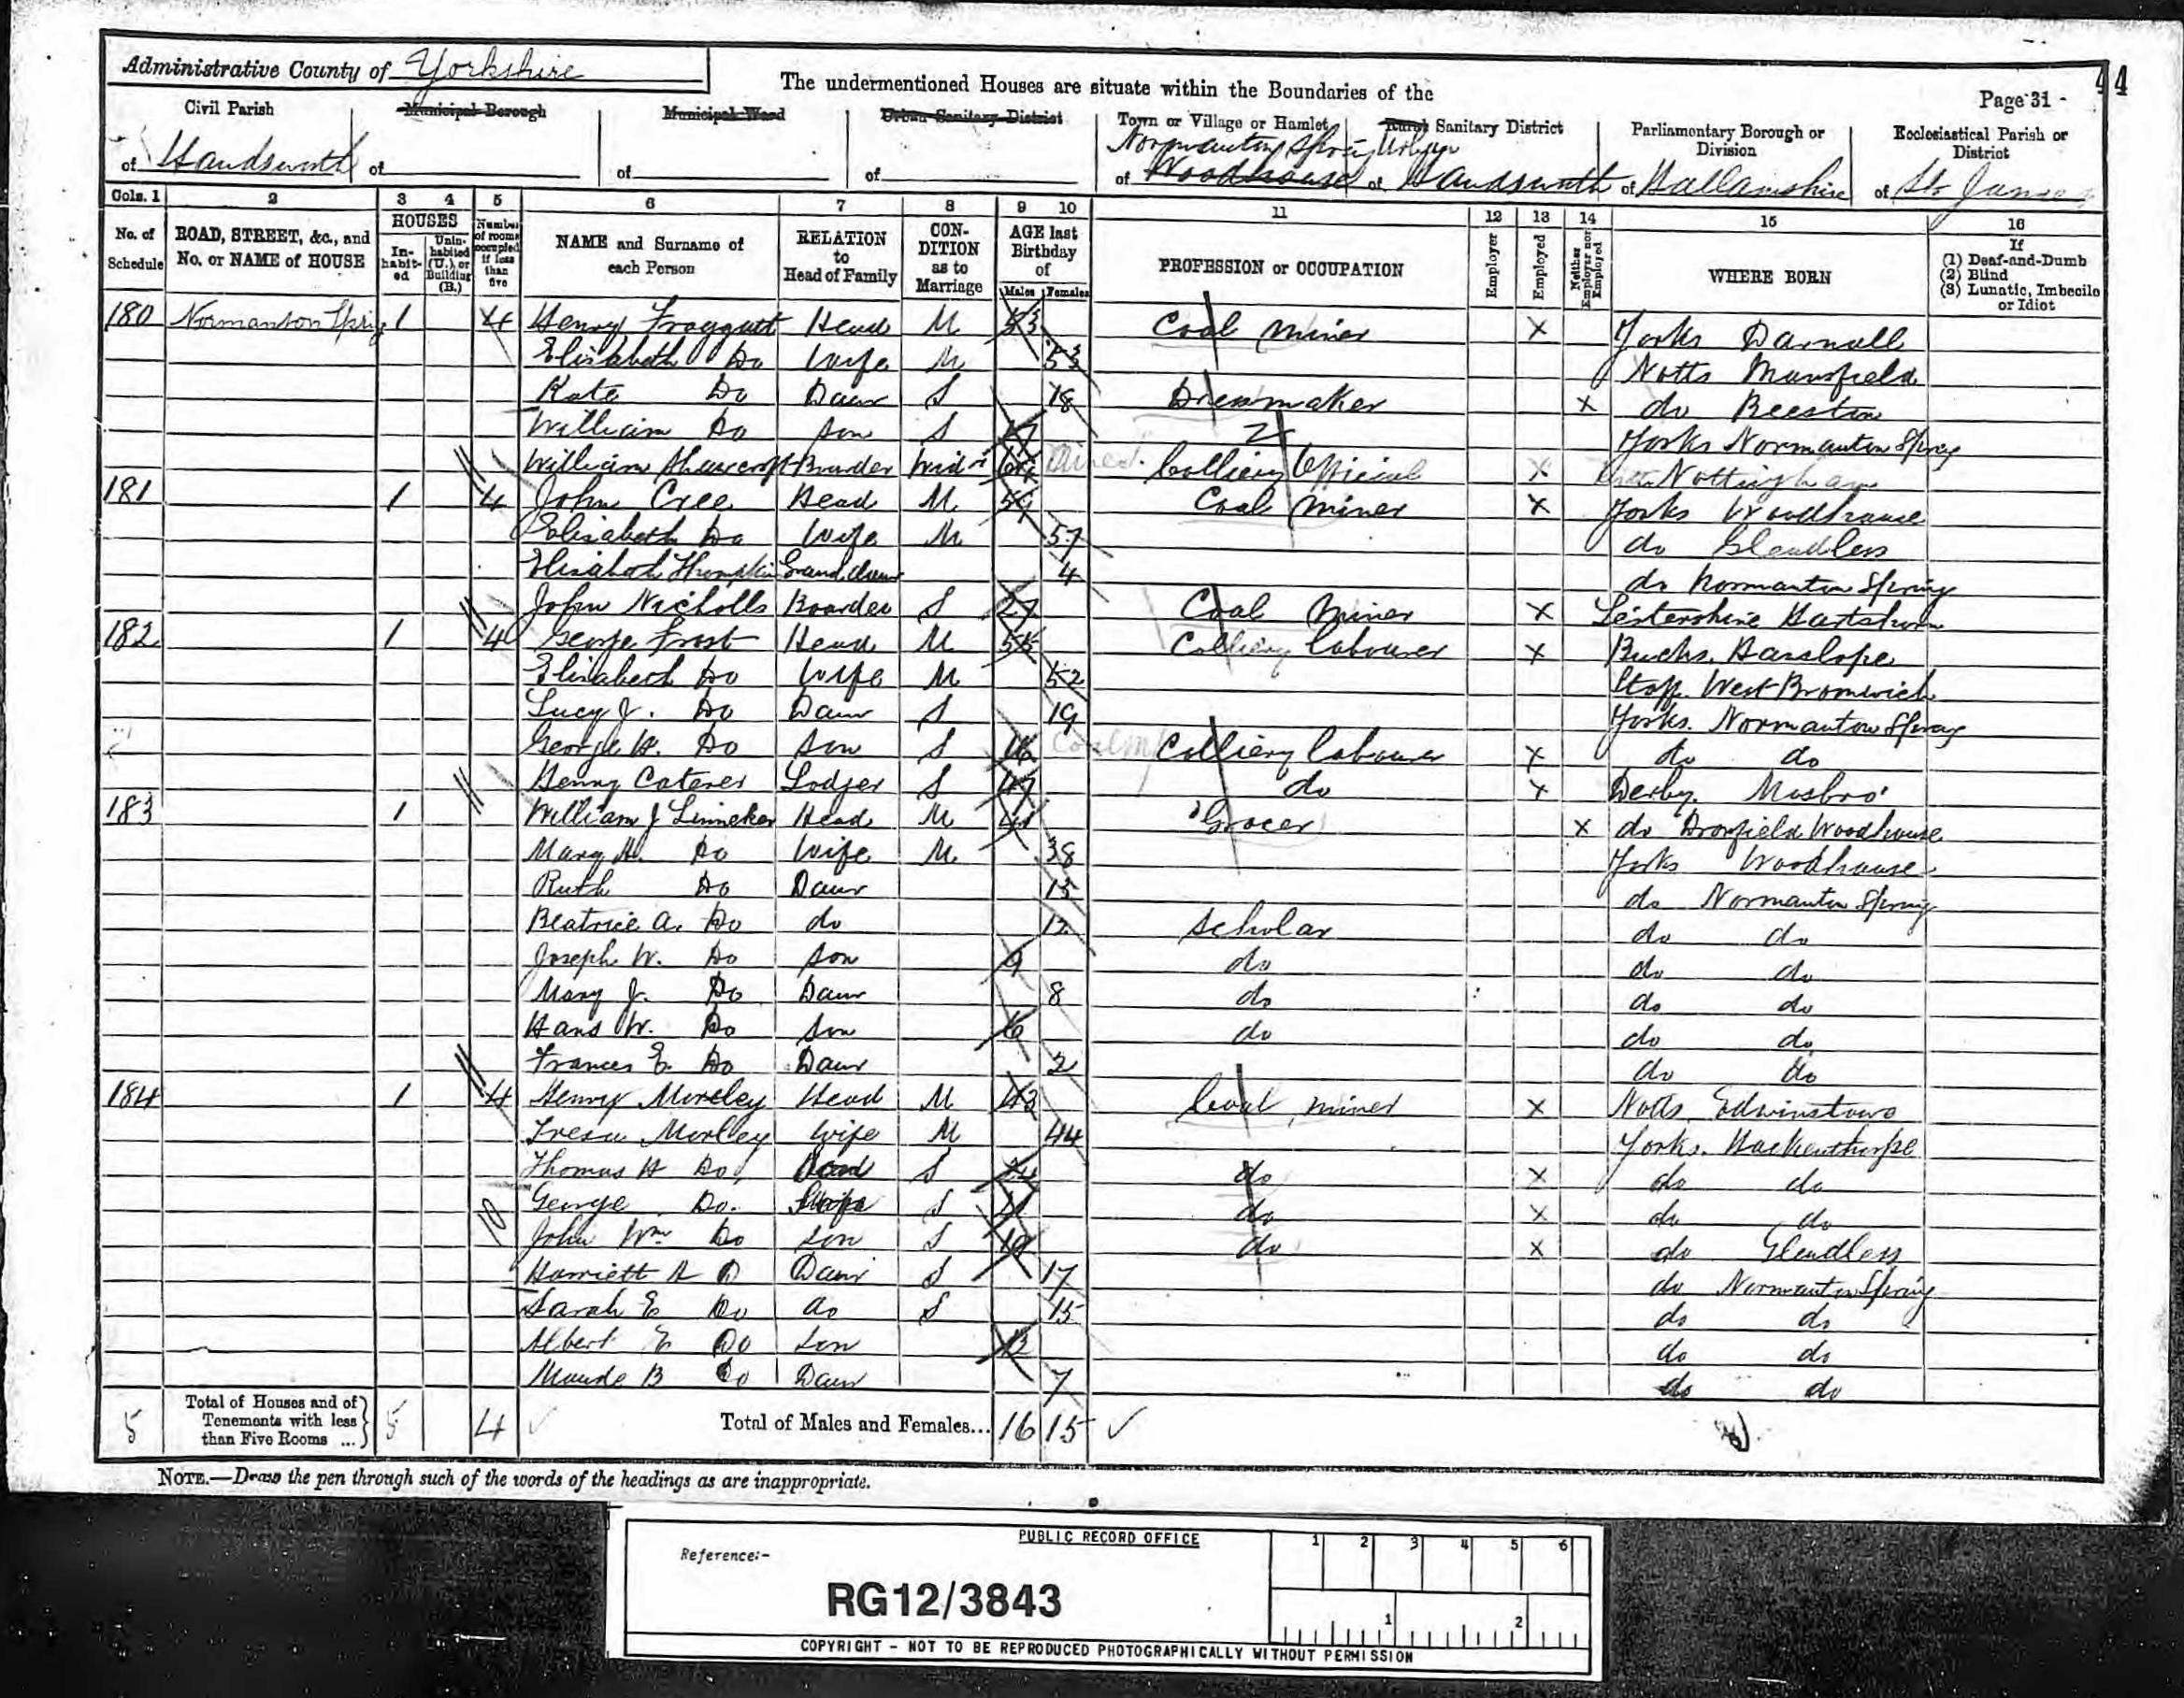 Administrative County of Yorkshire
The undermentioned Houses are situate within the Boundaries of the
44
Page 31
Civil Parish of Handsworth
Municipal Borough of
Municipal Ward of
Urban Sanitary District of
Town or Village or Hamlet of Normanton Spring Woodhouse
Rural Sanitary District of Urban Handsworth
Parliamentary Borough or Division of Hallamshire
Ecclesiastical Parish or District of St James
Cols. 1 2 3 4 5 6 7 8 9 10 11 12 13 14 15 16
No. of Schedule
ROAD, STREET, &c., and No. or NAME of HOUSE
HOUSES
In-habit-ed
Unin-habited (U.), or Building (B.)
Number of rooms occupied if less than five
NAME and Surname of each Person
RELATION to Head of Family
CON-DITION as to Marriage
AGE last Birthday of
Males Females
PROFESSION or OCCUPATION
Employer
Employed
Neither Employer nor Employed
WHERE BORN
If (1) Deaf-and-Dumb (2) Blind (3) Lunatic, Imbecile or Idiot
180 Normanton Spring 1 4 Henry Froggatt Head M 53 Coal Miner X Yorks Darnall
Elisabeth Do Wife M 53 Notts Mansfield
Kate Do Daur S 18 Dressmaker X do Beeston
William Do Son S Yorks Normanton Spring
William Boarder Widr Colliery Official X Nottingham
181 1 4 John Cree Head M 59 Coal Miner X Yorks Woodhouse
Elisabeth Do Wife M 57 do Gleadless
Elisabeth Grand daur 4 do Normanton Spring
John Nicholls Boarder S 27 Coal Miner X Leistershire Hartshorn
182 1 4 George Frost Head M Colliery Labourer X Bucks. Hanslope
Elizabeth Do Wife M 52 Staff. West Bromwich
Lucy J. Do Daur S 19 Yorks. Normanton Spring
George H. Do Son S 16 Colliery Labourer X do do
Henry Caterer Lodger S 47 do X Derby. Mosbro'
183 1 William J Linneker Head M 41 Grocer X do Dronfield Woodhouse
Mary H. Do Wife M 38 Yorks Woodhouse
Ruth Do Daur 15 do Normanton Spring
Beatrice A. Do do 12 Scholar do do
Joseph W. Do Son 9 do do do
Mary J. Do Daur 8 do do do
Hans W. Do Son 6 do do do
Frances E. Do Daur 2 do do
184 1 4 Henry Morley Head M 43 Coal miner X Notts Edwinstowe
Tresa Morley Wife M 44 Yorks. Hackenthorpe
Thomas H Do S 24 do X do do
George Do. S do X do do
10
John Wm Do Son S 19 do X do Gleadless
Harriett A D Daur S 17 do Normanton Spring
Sarah E Do do S 15 do do
Albert E Do Son 13 do do
Maude B Do Daur 7 do do
5 Total of Houses and of Tenements with less than Five Rooms ... 5 4 Total of Males and Females... 16 15
NOTE.—Draw the pen through such of the words of the headings as are inappropriate.
PUBLIC RECORD OFFICE
Reference:-
RG12/3843
1 2 3 4 5 6
1 2
COPYRIGHT - NOT TO BE REPRODUCED PHOTOGRAPHICALLY WITHOUT PERMISSION